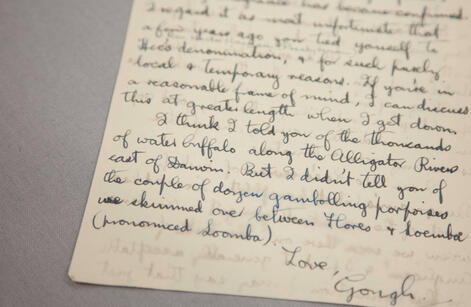 has become confirmed
I regard it as most unfortunate that
a few years ago you tied yourself to
denomination, & for such purely
local & temporary reasons. If you're in
a reasonable frame of mind, I can discuss
this at greater length when I get down.
I think I told you of the thousands
of water buffalo along the Alligator Rivers
east of Darwin. But I didn't tell you of
the couple of dozen gambolling porpoises
we skimmed over between Flores & Soemba
(pronounced Soomba)
Love,
Gough.